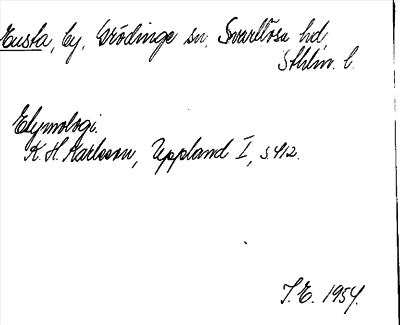 Eusta, by, Grödinge sn, Svartlösa hd,
Sthlm. l.
Etymologi.
K. H. Karlsson, Uppland I, s. 412.
J. E. 1954.